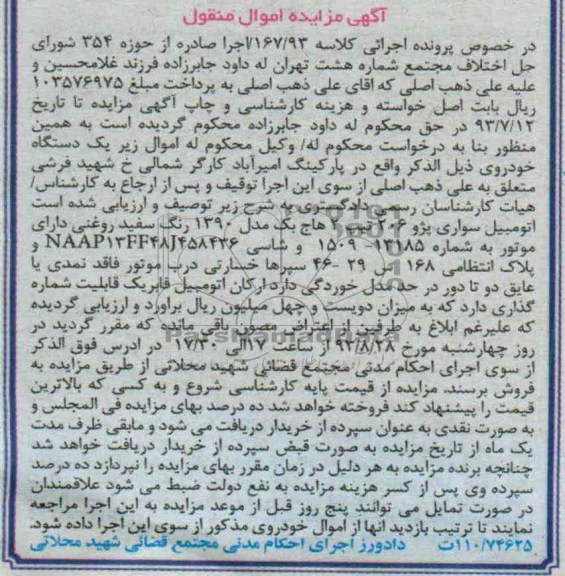 آگهی مزایده اموال منقول
در خصوص پرونده اجرائی کلاسه ۱۶۷/۹۳/اجرا صادره از حوزه ۳۵۴ شورای
حل اختلاف مجتمع شماره هشت تهران له داود جابرزاده فرزند غلامحسین و
علیه علی ذهب اصلی که اقای علی ذهب اصلی به پرداخت مبلغ ۱۰۳۵۷۶۹۷۵
ریال بابت اصل خواسته و هزینه کارشناسی و چاپ آگهی مزایده تا تاریخ
۹۳/۷/۱۲ در حق محکوم له داود جابرزاده محکوم گردیده است به همین
منظور بنا به درخواست محکوم له/ وکیل محکوم له اموال زیر یک دستگاه
خودروی ذیل الذکر واقع در پارکینگ امیرآباد کارگر شمالی خ شهید فرشی
متعلق به علی ذهب اصلی از سوی این اجرا توقیف و پس از ارجاع به کارشناس/
هیات کارشناسان رسمی دادگستری به شرح زیر توصیف و ارزیابی شده است
اتومبیل سواری پژو ۲۰۶ هاچ بک مدل ۱۳۹۰ رنگ سفید روغنی دارای
موتور به شماره ۱۳۱۸۵ ۱۵۰۹ و شاسی NAAP۱۳FF۴۸J۴۵۸۴۳۶ و
پلاک انتظامی ۱۶۸ س ۲۹ -۴۶ سپرها خسارتی درب موتور فاقد نمدی یا
عایق دو تا دور در حد مدل خوردگی دارد ارکان اتومبیل فابریک قابلیت شماره
گذاری دارد که به میزان دویست و چهل میلیون ریال براورد و ارزیابی گردیده
که علیرغم ابلاغ به طرفین از اعتراض مصون باقی مانده که مقرر گردید در
روز چهارشنبه مورخ ۹۳/۸/۲۸ از ساعت ۱۷الی ۱۷/۳۰ در ادرس فوق الذکر
از سوی اجرای احکام مدنی مجتمع قضائی شهید محلاتی از طریق مزایده به
فروش برسند. مزایده از قیمت پایه کارشناسی شروع و به کسی که بالاترین
قیمت را پیشنهاد کند فروخته خواهد شد ده درصد بهای مزایده فی المجلس و
به صورت نقدی به عنوان سپرده از خریدار دریافت می شود و مابقی ظرف مدت
یک ماه از تاریخ مزایده به صورت قبض سپرده از خریدار دریافت خواهد شد
چنانچه برنده مزایده به هر دلیل در زمان مقرر بهای مزایده را نپردازد ده درصد
سپرده وی پس از کسر هزینه مزایده به نفع دولت ضبط می شود علاقمندان
در صورت تمایل می توانند پنج روز قبل از موعد مزایده به این اجرا مراجعه
نمایند تا ترتیب بازدید انها از اموال خودروی مذکور از سوی این اجرا داده شود.
۱۱۰/۷۴۶۲۵ت دادورز اجرای احکام مدنی مجتمع قضائی شهید محلاتی